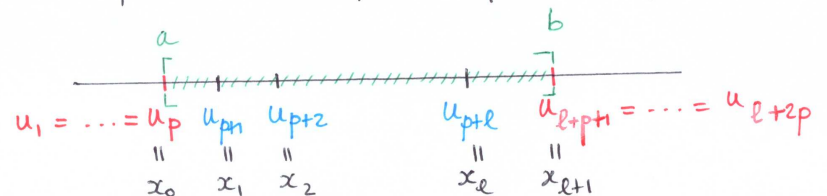 a b
u₁ = ...... = u_p u_{p+1} u_{p+2} u_{p+ℓ} u_{ℓ+p+1} = ...... = u_{ℓ+2p}
|| || || || ||
x₀ x₁ x₂ x_ℓ x_{ℓ+1}